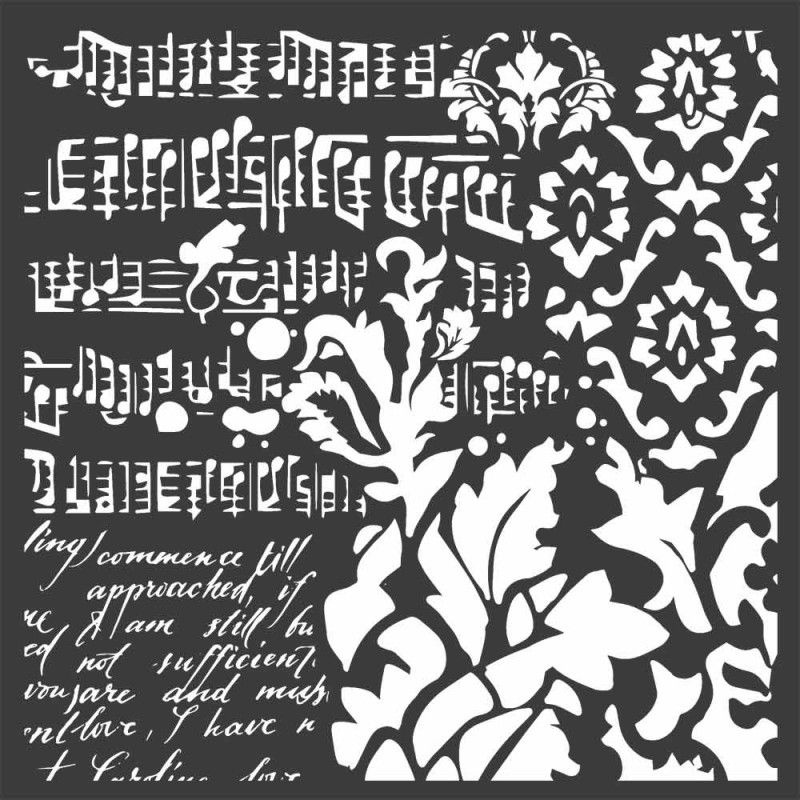 ling) commence till
approached, if
re & I am still bu
ed not sufficient
you are and much
ent love, I have n
t Caroline love